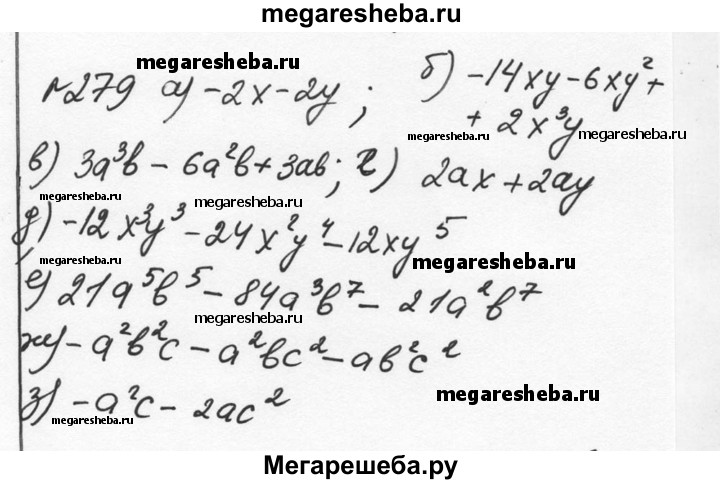 megaresheba.ru
megaresheba.ru
№279 а) -2x-2y; б) -14xy-6xy²+
+ 2x³y
megaresheba.ru megaresheba.ru
в) 3a³b - 6a²b+3ab; г) 2ax+2ay
megaresheba.ru megaresheba.ru
д) -12x³y³-24x²y⁴-12xy⁵
megaresheba.ru megaresheba.ru
е) 21a⁵b⁵-84a³b⁷-21a²b⁷
megaresheba.ru
ж) -a²b²c-a²bc²-ab²c²
з) -a²c-2ac²
megaresheba.ru megaresheba.ru
Мегарешеба.ру